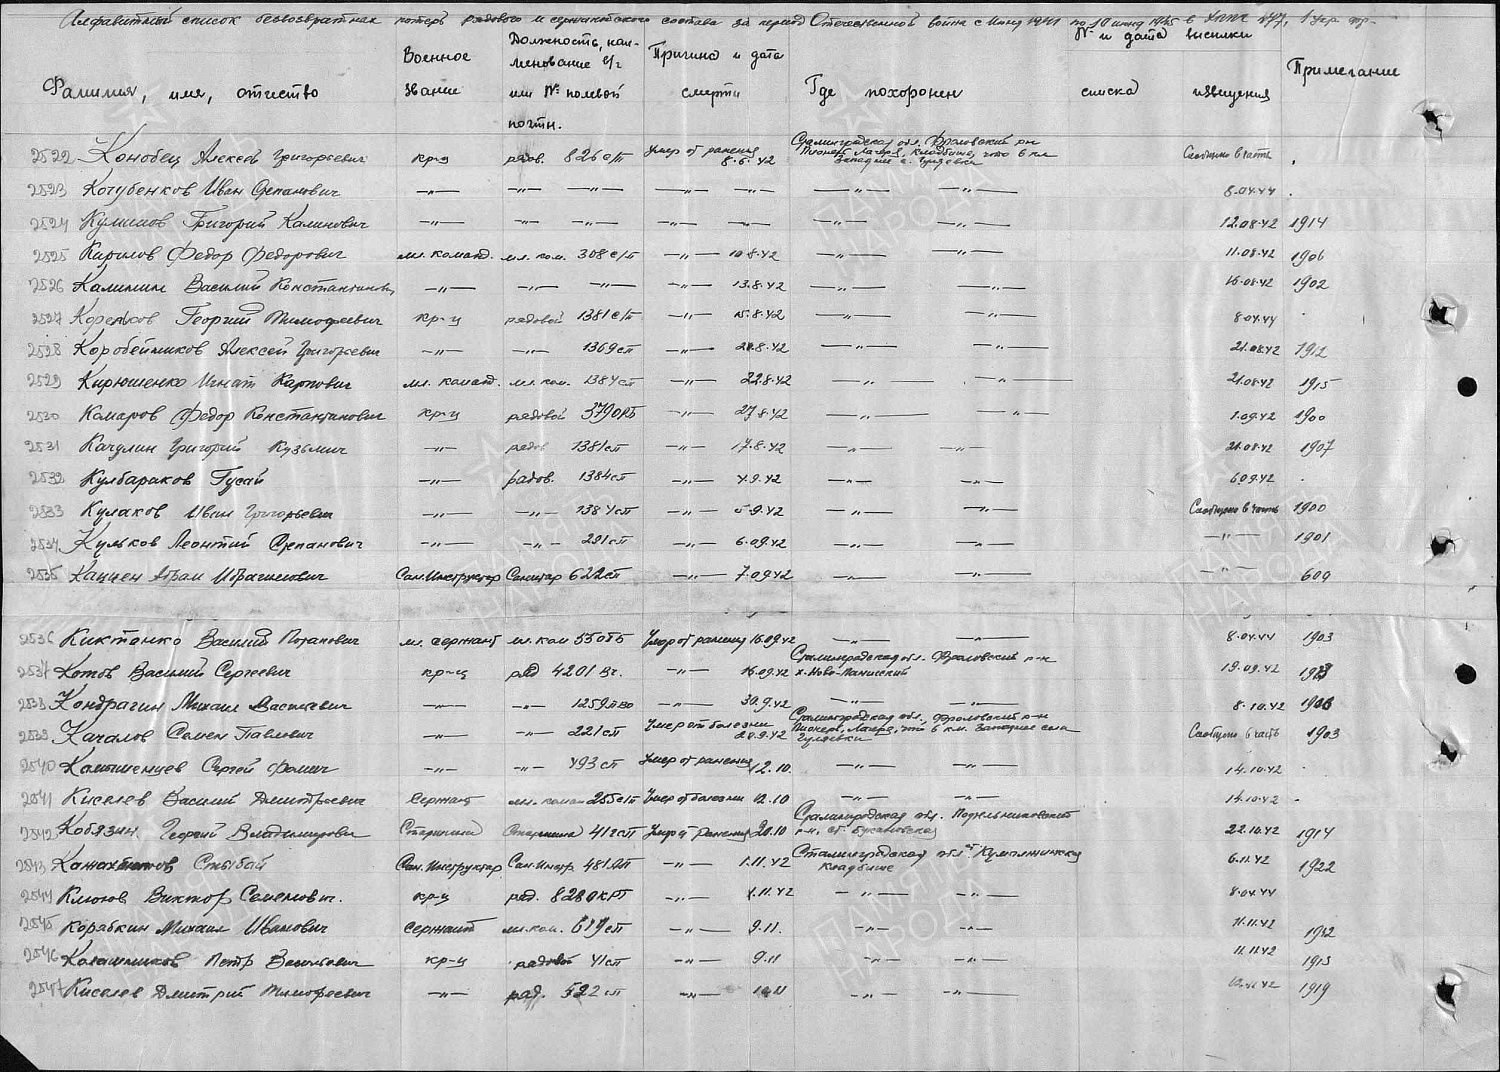 Алфавитный список безвозвратных потерь рядового и сержантского состава за период Отечественной войны с июня 1941 по 10 июня 1945 в
Фамилия, имя, отчество | Военное звание | Должность, наименование в/ч или № полевой почтн. | Причина и дата смерти | Где похоронен | № и дата высылки списка | извещения | Примечание
2522 Конобец Алексей Григорьевич кр-ц рядов. 826 с/п Умер от ранения 8.8.42 Сталинградская обл. Фроловский рн Пионер Лагерь, кладбище, что 6 км западнее с. Гуляевка Сообщено в часть
2523 Кочубенков Иван Степанович —"— —"— —"— —"— —"— —"— —"— 8.04.44
2524 Кулишов Григорий Калинович —"— —"— —"— —"— —"— —"— —"— 12.08.42 1914
2525 Кирилов Федор Федорович мл. команд. мл. ком. 308 с/п —"— 10.8.42 —"— —"— 11.08.42 1906
2526 Калинин Василий Константинович —"— —"— —"— —"— 13.8.42 —"— —"— 16.08.42 1902
2527 Корольков Георгий Тимофеевич кр-ц рядовой 1381 с/п —"— 15.8.42 —"— —"— 8.04.44
2528 Коробейников Алексей Григорьевич —"— —"— 1369 сп —"— 21.8.42 —"— —"— 21.08.42 1912
2529 Кирюшенко Игнат Карпович мл. команд. мл. ком. 1384 сп —"— 22.8.42 —"— —"— 21.08.42 1915
2530 Комаров Федор Константинович кр-ц рядовой —"— 27.8.42 —"— —"— 1.09.42 1900
2531 Качулин Григорий Кузьмич —"— рядов 1381 сп —"— 17.8.42 —"— —"— 21.08.42 1907
2532 Кулбараков Гусай рядов. 1384 сп —"— 4.9.42 —"— —"— 6.09.42
2533 Кулаков Иван Григорьевич —"— —"— 1384 сп —"— 5.9.42 —"— —"— Сообщено в часть 1900
2534 Кульков Леонтий Степанович —"— —"— 291 сп —"— 6.09.42 —"— —"— —"— 1901
2535 Кацнен Абрам Ибрагимович Сан.Инструктор Санитар 622 сп —"— 7.09.42 —"— —"— —"— 609
2536 Киктенко Василий Потапович мл. сержант мл. ком Умер от ранения 16.09.42 —"— —"— 8.04.44 1903
2537 Котов Василий Сергеевич кр-ц ряд 4201 —"— 16.09.42 Сталинградская обл. Фроловский р-н х. Ново-Паниский 19.09.42
2538 Кондрагин Михаил Васильевич —"— —"— 1259 —"— 30.9.42 —"— —"— 8.10.42
2539 Качалов Семен Павлович —"— —"— 221 сп Умер от болезни 28.9.42 Сталинградская обл., Фроловский р-н Пионер. Лагерь, что 6 км. западнее села Гуляевки Сообщено в часть 1903
2540 Камышенцев Сергей Фомич —"— —"— 493 сп Умер от ранения 12.10. —"— —"— 14.10.42
2541 Киселев Василий Дмитриевич Сержант мл. коман. 255 с/п Умер от болезни 12.10 —"— —"— 14.10.42
2542 Кобязин Георгий Владимирович Старшина Старшина 412 сп Умер от ранения 20.10 Сталинградская обл. Подтелковский р-н, ст. Букановская 22.10.42 1914
2543 Стыбай Сан.Инструктор Сан.Инстр. —"— 1.11.42 Сталинградская обл. Кумылжинск. кладбище 6.11.42 1922
2544 Клюгов Виктор Семенович. кр-ц ряд. —"— 1.11.42 —"— —"— 8.04.44
2545 Корябкин Михаил Иванович сержант мл. ком. 619 сп —"— 9.11. —"— —"— 11.11.42 1912
2546 Калашников Петр Васильевич кр-ц рядовой 41 сп —"— 9.11 —"— —"— 11.11.42 1913
2547 Киселев Дмитрий Тимофеевич —"— ряд. 522 сп —"— 10.11 —"— —"— 1919
ПАМЯТЬ НАРОДА